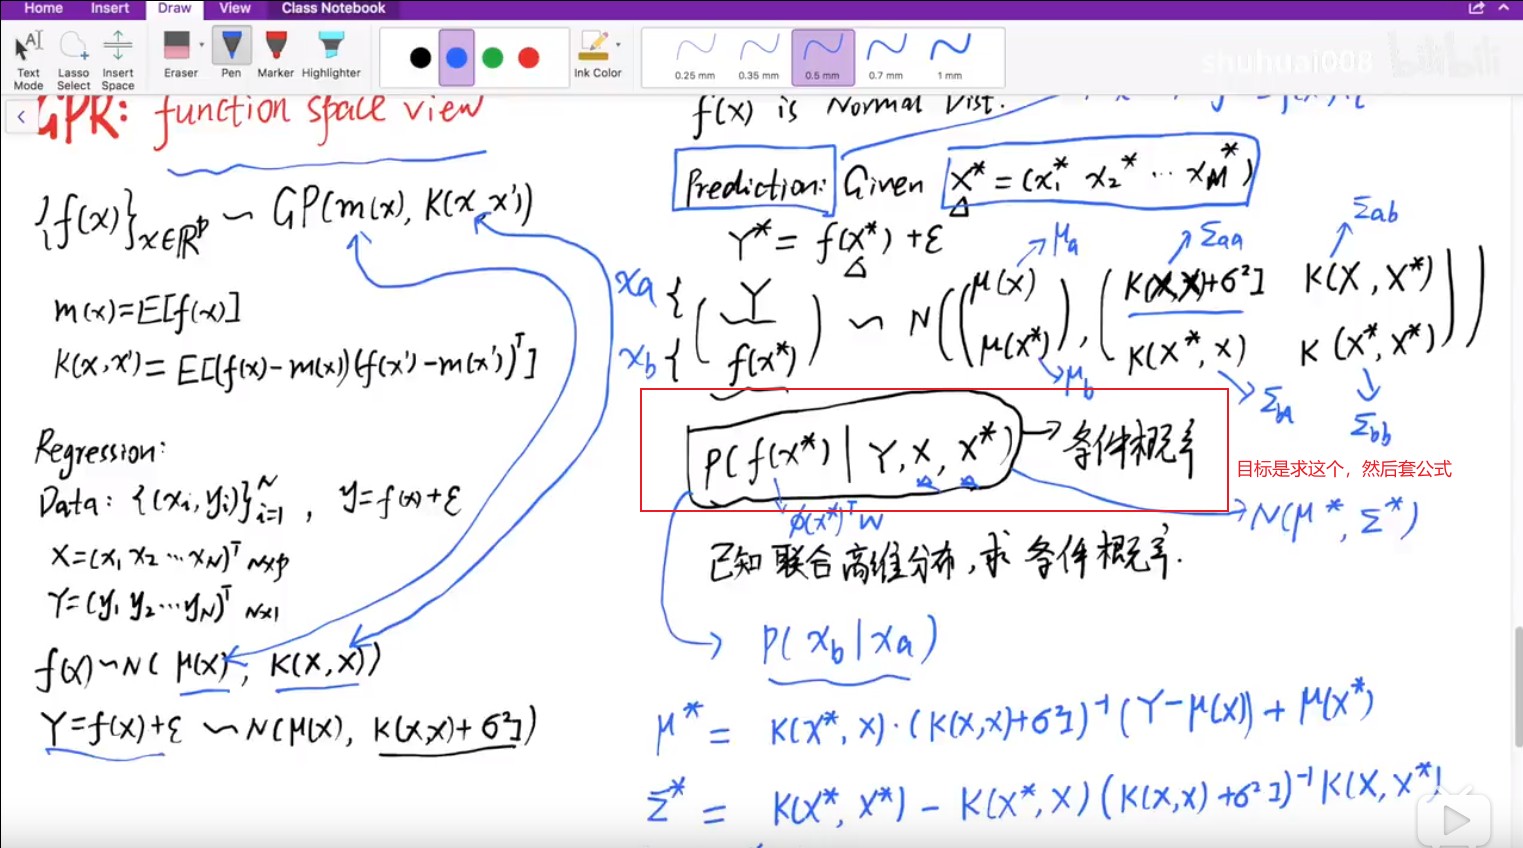 Home Insert Draw View Class Notebook
Text Mode
Lasso Select
Insert Space
Eraser
Pen
Marker
Highlighter
Ink Color
0.25 mm
0.35 mm
0.5 mm
0.7 mm
1 mm
shuhuai008 bilibili
GPR: function space view
{f(x)}x∈ℝᵖ ∼ GP(m(x), K(x,x'))
m(x)=E[f(x)]
K(x,x')=E[(f(x)-m(x))(f(x')-m(x'))ᵀ]
Regression:
Data: {(xᵢ,yᵢ)}ᵢ₌₁ᴺ , y=f(x)+ε
X=(x₁ x₂ ⋯ x_N)ᵀ N×p
Y=(y₁ y₂ ⋯ y_N)ᵀ N×1
f(x)∼N( μ(x), K(X,X))
Y=f(x)+ε ∼N(μ(x), K(X,X)+σ²I)
f(x) is Normal Dist.
Prediction: Given X*=(x₁* x₂* ⋯ x_M*)
Y*= f(X*)+ε
μa
Σaa
Σab
xa { ( Y
xb { f(X*) ) ∼ N( ( μ(x)
μ(x*) ) , ( K(X,X)+σ²I K(X,X*)
K(X*,X) K(X*,X*) ) )
μb
Σba
Σbb
P(f(X*)|Y,X,X*) → 条件概率
目标是求这个，然后套公式
φ(x*)ᵀw
N(μ*,Σ*)
已知联合高维分布,求条件概率.
P(xb|xa)
μ* = K(X*,X)·(K(X,X)+σ²I)⁻¹(Y-μ(x))+μ(x*)
Σ* = K(X*,X*)-K(X*,X)(K(X,X)+σ²I)⁻¹K(X,X*)